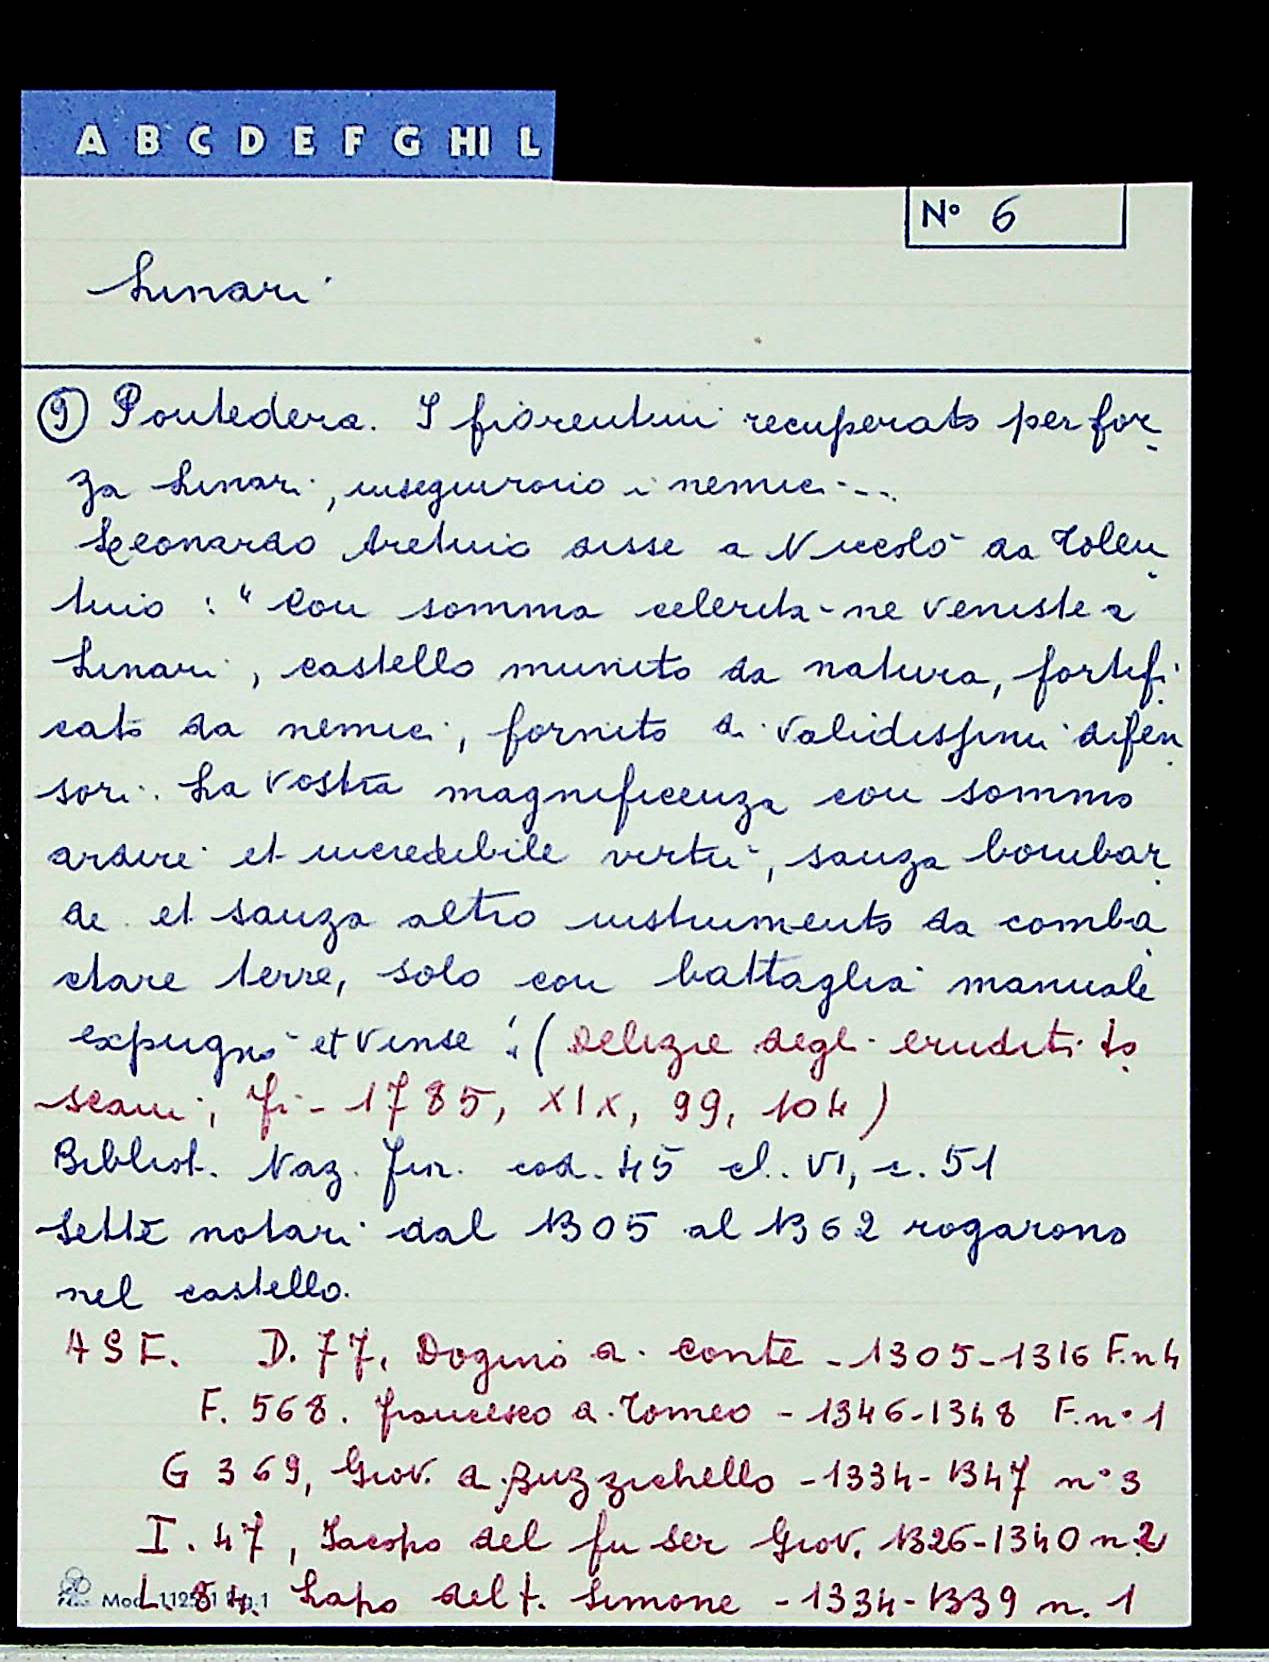 A B C D E F G HI L
N° 6
Linari
⑨ Pontedera. I fiorentini recuperato per for
za Linari, inseguirono i nemici...
Leonardo Aretino disse a Niccolò da Tolen
tino : " Con somma celerità ne veniste a
Linari, castello munito da natura, fortifi
cato da nemici, fornito di validissimi difen
sori. La vostra magnificenza con sommo
ardire et incredibile virtù, sanza bombar
de et sanza altro instrumento da comba
ctare terre, solo con battaglia manuale
expugnò et vinse". (Delizie degli eruditi to
scani, Fi- 1785, XIX, 99, 104)
Bibliot. Naz. Fir. cod. 45 cl. VI, c. 51
Sette notari dal 1305 al 1362 rogarono
nel castello.
ASF. D. 77, Dogino di Conte - 1305-1316 F.n 4
F. 568. Francesco di Tomeo - 1346-1348 F.n° 1
G 369, Giov. di Buzzichello - 1334-1347 n° 3
I. 47, Iacopo del fu ser Giov. 1326-1340 n. 2
L. 84. Lapo del f. Simone - 1334-1339 n. 1